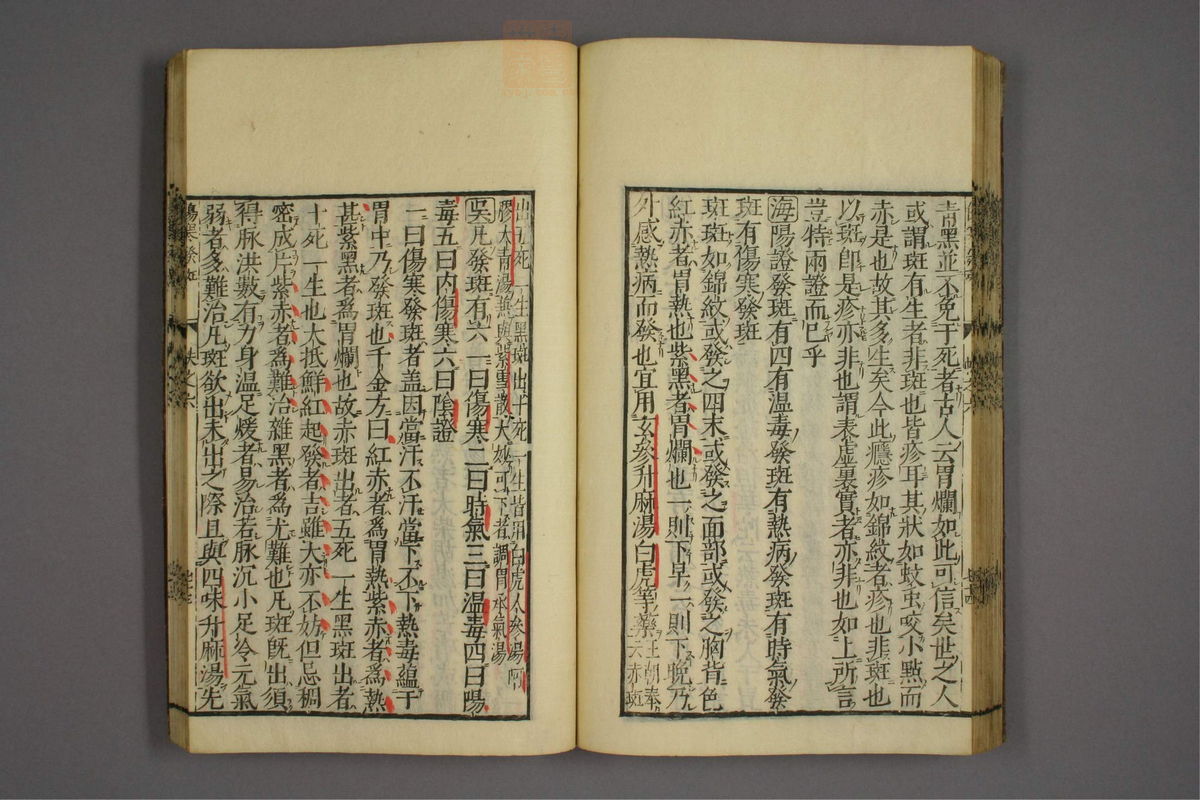 青黑並不免于死者古人云胃爛如此可信矣世之人
或謂斑有生者非斑也皆疹耳其狀如蚊虫咬小㸃而
赤是也故其多生矣今此癮疹如錦紋者疹也非斑也
以斑卽是疹亦非也謂表虛裏實者亦非也如上所言
豈特兩證而已乎
海陽證發斑有四有温毒發斑有熱病發斑有時氣發
斑有傷寒發斑
斑斑如錦紋或發之四末或發之面部或發之胸背色
紅赤者胃熱也紫黑者胃爛也一則下早一則下晩乃
外感熱病而發也宜用玄參升麻湯白虎等藥
王朝奉
云赤斑
出五死一生黑斑出十死一生皆用白虎人參湯阿
膠大青湯兼與紫雪散大妙可下者調胃承氣湯
吳凡發斑有六一曰傷寒二曰時氣三曰温毒四曰陽
毒五曰内傷寒六曰陰證
一曰傷寒發斑者盖因當汗不汗當下不下熱毒蘊于
胃中乃發斑也千金方曰紅赤者爲胃熱紫赤者爲熱
甚紫黑者爲胃爛也故赤斑出者五死一生黑斑出者
十死一生也大抵鮮紅起發者吉雖大亦不妨但忌稠
密成片紫赤者爲難治雜黑者爲尤難也凡斑旣出須
得脉洪數有力身温足煖者易治若脉沉小足冷元氣
弱者多難治凡斑欲出未出之際且與四味升麻湯先